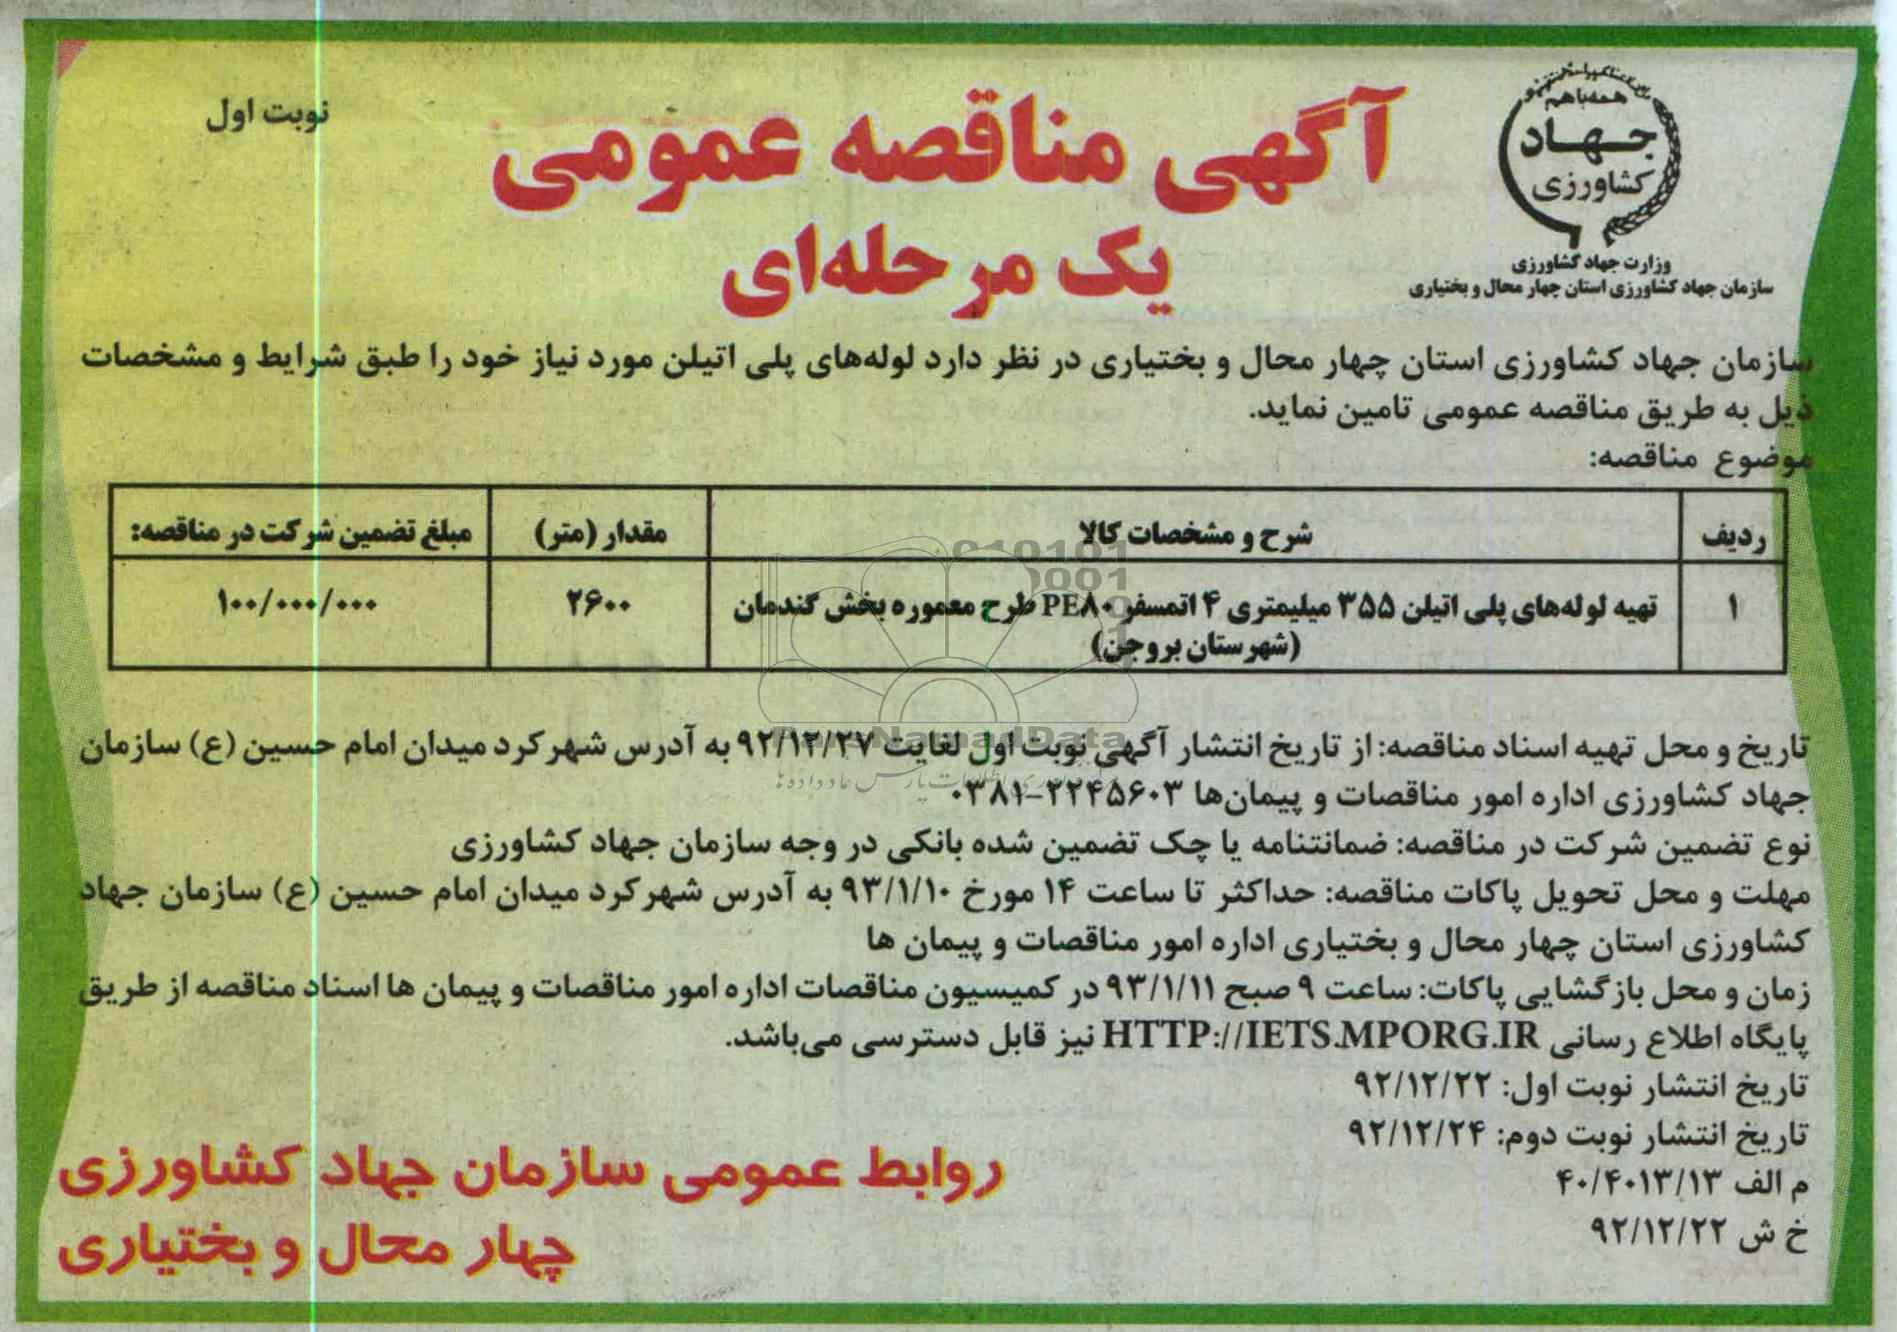 همه با هم
جهاد
کشاورزی
وزارت جهاد کشاورزی
سازمان جهاد کشاورزی استان چهار محال و بختیاری
نوبت اول
آگهی مناقصه عمومی
یک مرحله‌ای
سازمان جهاد کشاورزی استان چهار محال و بختیاری در نظر دارد لوله‌های پلی اتیلن مورد نیاز خود را طبق شرایط و مشخصات
ذیل به طریق مناقصه عمومی تامین نماید.
موضوع مناقصه:
ردیف شرح و مشخصات کالا مقدار (متر) مبلغ تضمین شرکت در مناقصه:
۱ تهیه لوله‌های پلی اتیلن ۳۵۵ میلیمتری ۴ اتمسفر PE۸۰ طرح معموره بخش گندمان ۲۶۰۰ ۱۰۰/۰۰۰/۰۰۰
(شهرستان بروجن)
ParsNamadData
تاریخ و محل تهیه اسناد مناقصه: از تاریخ انتشار آگهی نوبت اول لغایت ۹۲/۱۲/۲۷ به آدرس شهرکرد میدان امام حسین (ع) سازمان
جهاد کشاورزی اداره امور مناقصات و پیمان‌ها ۲۲۴۵۶۰۳-۰۳۸۱
نوع تضمین شرکت در مناقصه: ضمانتنامه یا چک تضمین شده بانکی در وجه سازمان جهاد کشاورزی
مهلت و محل تحویل پاکات مناقصه: حداکثر تا ساعت ۱۴ مورخ ۹۳/۱/۱۰ به آدرس شهرکرد میدان امام حسین (ع) سازمان جهاد
کشاورزی استان چهار محال و بختیاری اداره امور مناقصات و پیمان ها
زمان و محل بازگشایی پاکات: ساعت ۹ صبح ۹۳/۱/۱۱ در کمیسیون مناقصات اداره امور مناقصات و پیمان ها اسناد مناقصه از طریق
پایگاه اطلاع رسانی HTTP://IETS.MPORG.IR نیز قابل دسترسی می‌باشد.
تاریخ انتشار نوبت اول: ۹۲/۱۲/۲۲
تاریخ انتشار نوبت دوم: ۹۲/۱۲/۲۴
م الف ۴۰/۴۰۱۳/۱۳
خ ش ۹۲/۱۲/۲۲
روابط عمومی سازمان جهاد کشاورزی
چهار محال و بختیاری